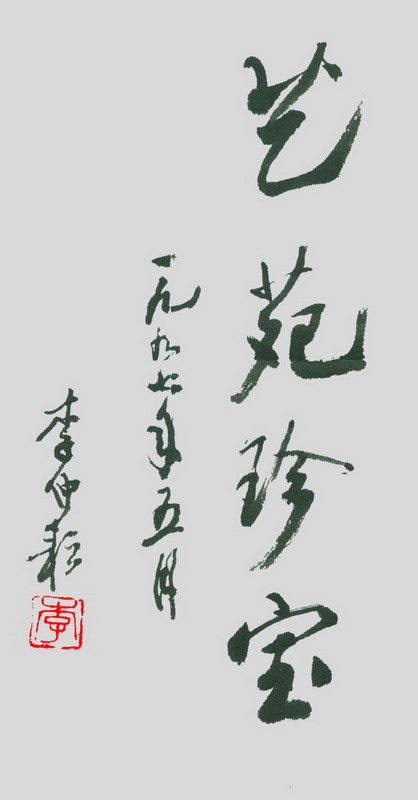 艺苑珍宝
一九九七年五月
李仲耘
李